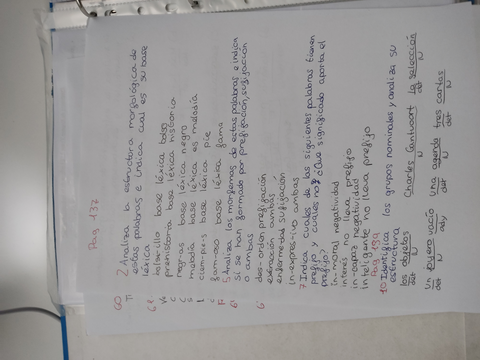 Pag 137
2 Analiza la estructura morfológica de
estas palabras e indica cual es su base
léxica
bolsi-llo base léxica bolso
base léxica historia
negr-as base léxica negro
base léxica es melodía
base léxica pie
fam-oso base léxica fama
5 Analiza los morfemas de estas palabras e indica
si se han formado por prefijación, sufijación
o ambas
des-orden prefijación
ambas
enfermedad sufijación
in-expres-ivo ambas
7 Indica cuales de las siguientes palabras tienen
prefijo y cuales no ¿Que significado aporta el
prefijo?
in-moral negatividad
interés no lleva prefijo
in-capaz negatividad
inteligente no lleva prefijo
Pag
10 Identifica los grupos nominales y analiza su
estructura
los objetos Charles la selección
det N N det N
Un joyero vacío una agenda tres cartas
det N adj det N det N